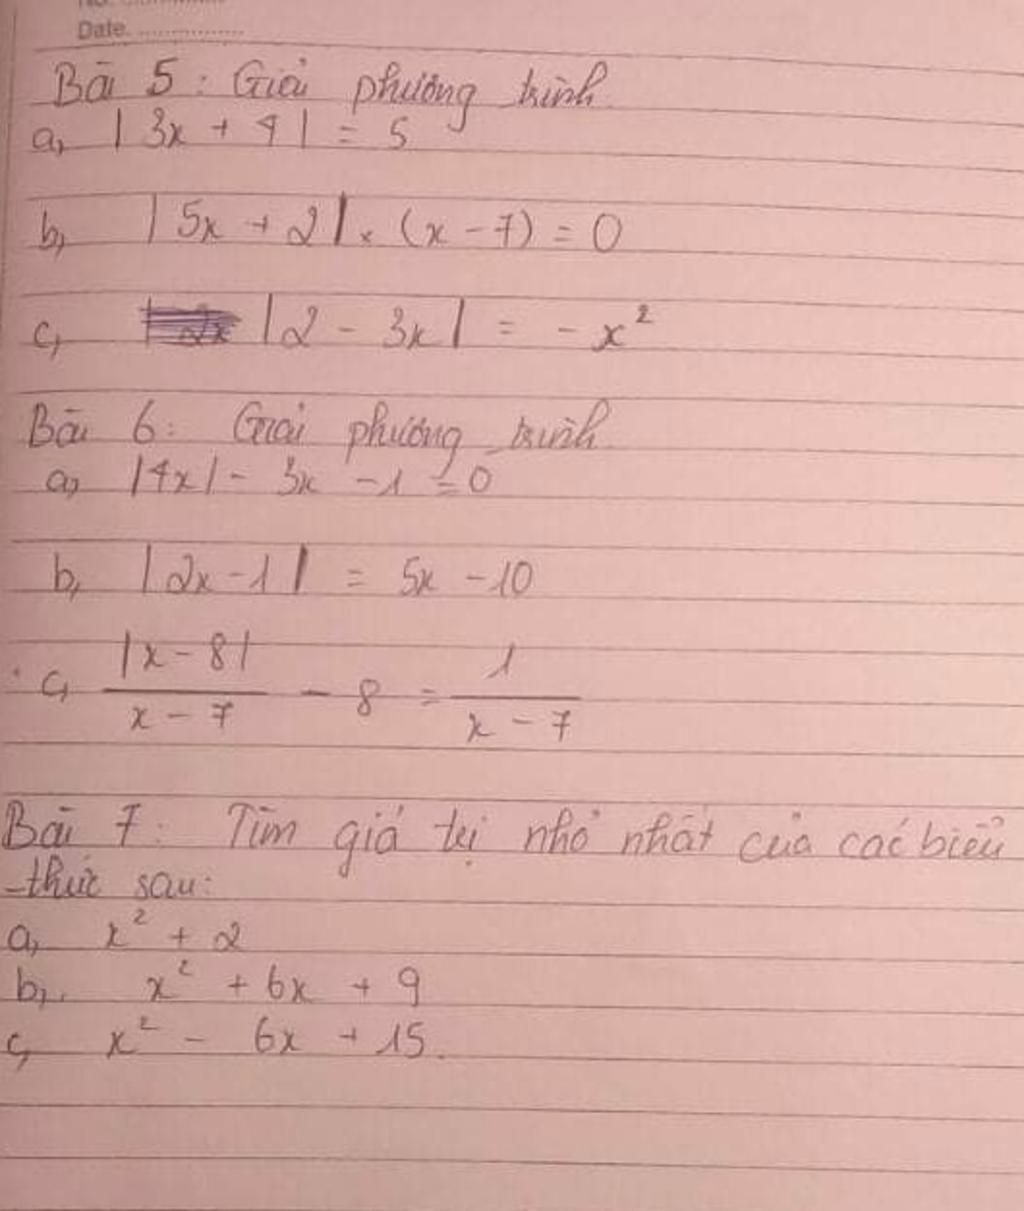 Date. ................
Bài 5 : Giải phương trình
a, | 3x + 4 | = 5
b, | 5x + 2 | . (x - 7) = 0
c, | 2 - 3x | = - x²
Bài 6 : Giải phương trình
a, |4x| - 3x - 1 = 0
b, | 2x - 1 | = 5x - 10
c, |x - 8| / (x - 7) - 8 = 1 / (x - 7)
Bài 7 : Tìm giá trị nhỏ nhất của các biểu
thức sau:
a, x² + 2
b, x² + 6x + 9
c, x² - 6x + 15.